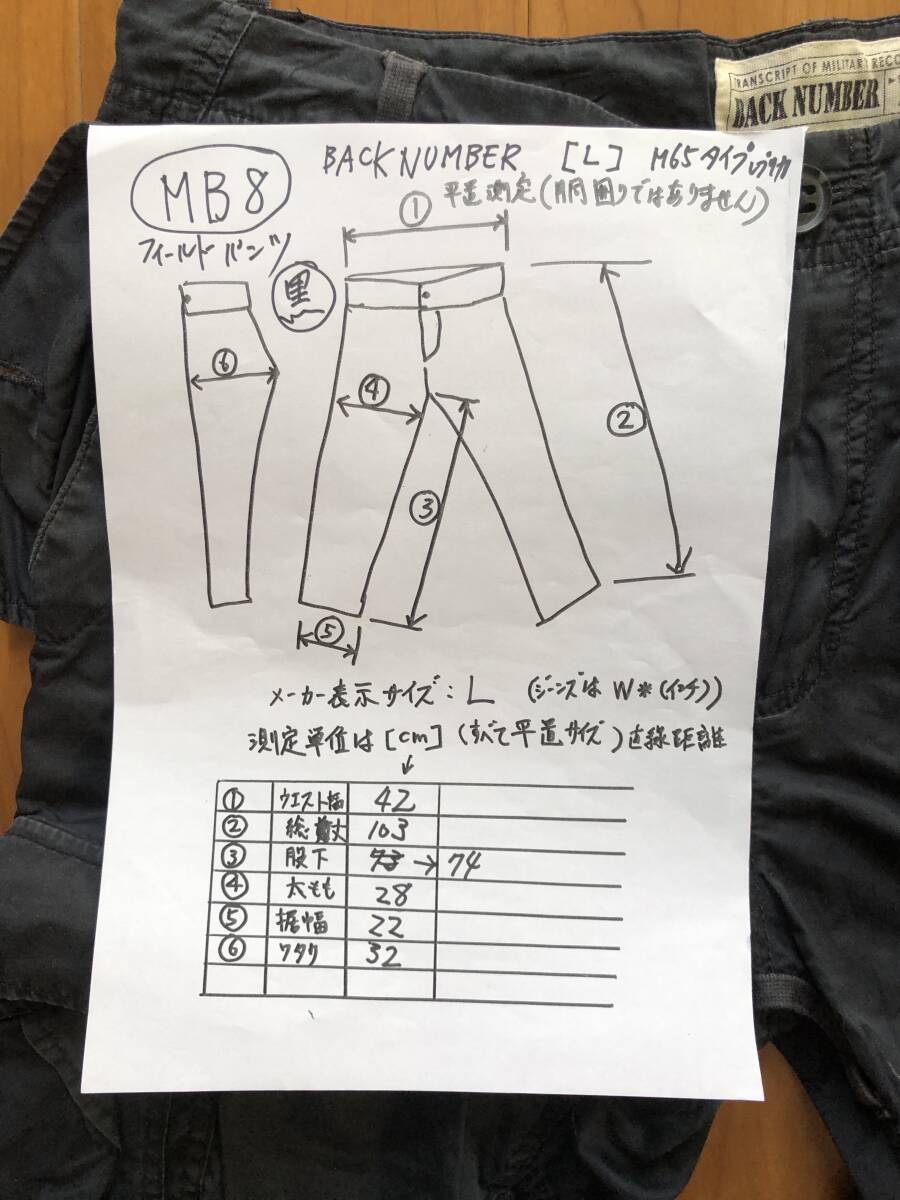 TRANSCRIPT OF MILITARY RECO
BACK NUMBER
MB8
BACK NUMBER [L] M65タイプレプリカ
① 平置測定(胴囲りではありません)
フィールドパンツ
黒
⑥
④
②
③
⑤
メーカー表示サイズ:L (ジーンズはW*(インチ))
測定単位は[cm](すべて平置サイズ)直線距離
↓
① ウエスト幅 42
② 総丈 103
③ 股下 73 → 74
④ 太もも 28
⑤ 裾幅 22
⑥ ワタリ 32